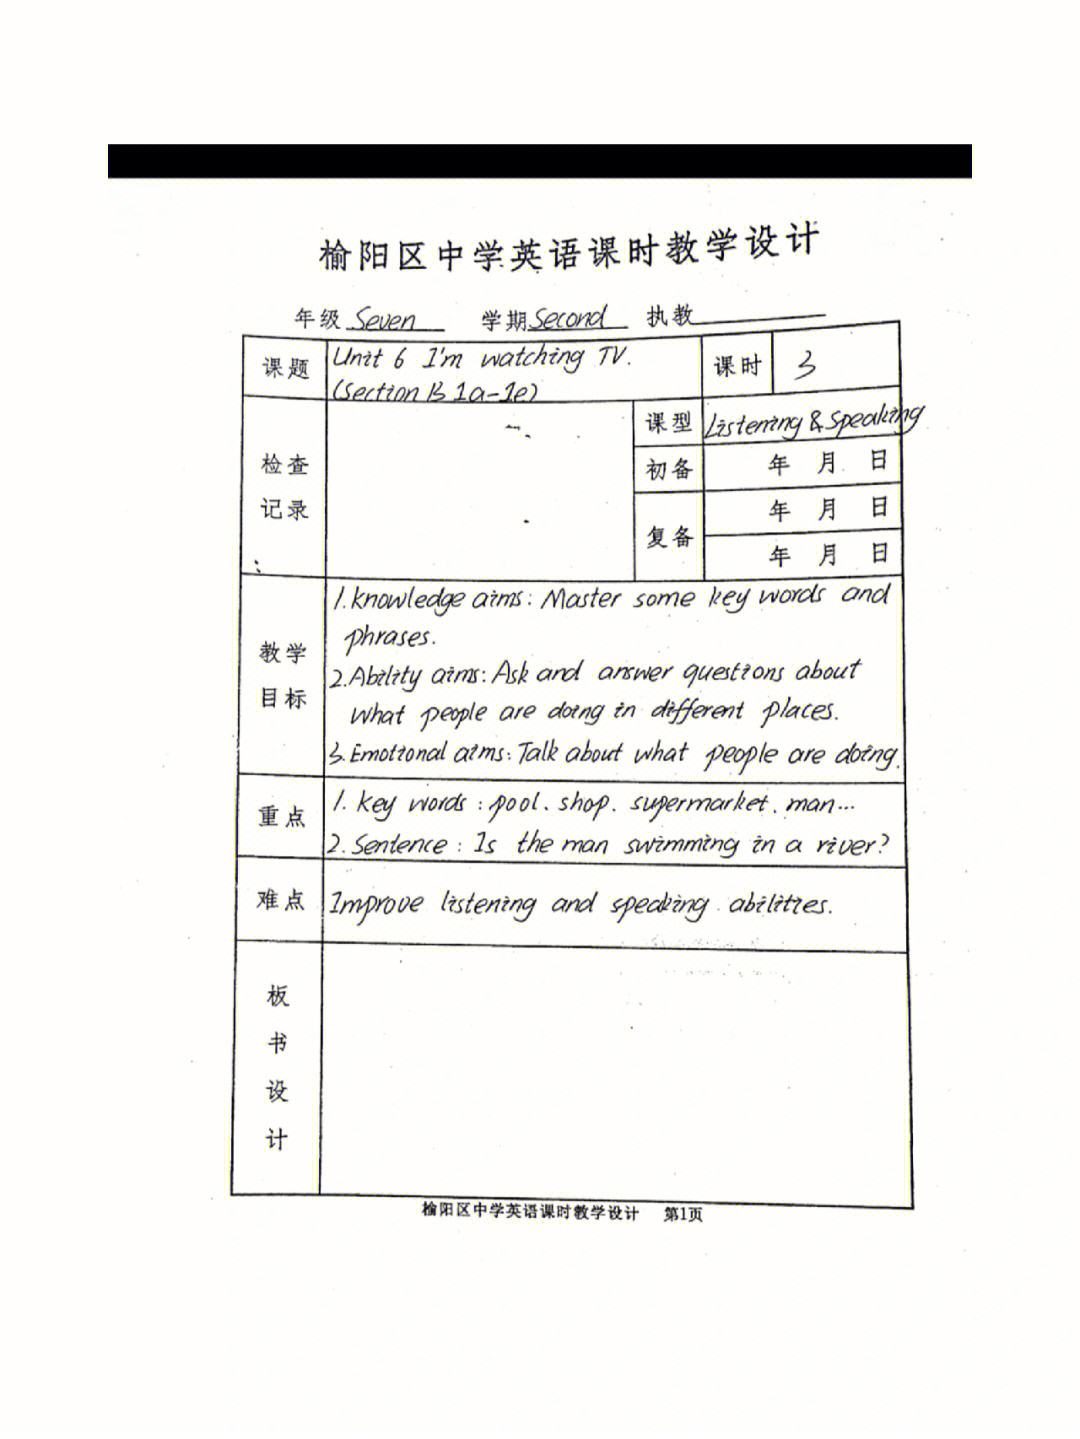 榆阳区中学英语课时教学设计
年级 Seven 学期 Second 执教
课题 Unit 6 I'm watching TV. 课时 3
(Section B 1a-1e)
检查记录 课型 Listening & Speaking
初备 年 月 日
复备 年 月 日
年 月 日
教学目标
1. Knowledge aims: Master some key words and
phrases.
2. Ability aims: Ask and answer questions about
what people are doing in different places.
3. Emotional aims: Talk about what people are doing.
重点 1. Key words: pool、shop、supermarket、man...
2. Sentence: Is the man swimming in a river?
难点 Improve listening and speaking abilities.
板书设计
榆阳区中学英语课时教学设计 第1页